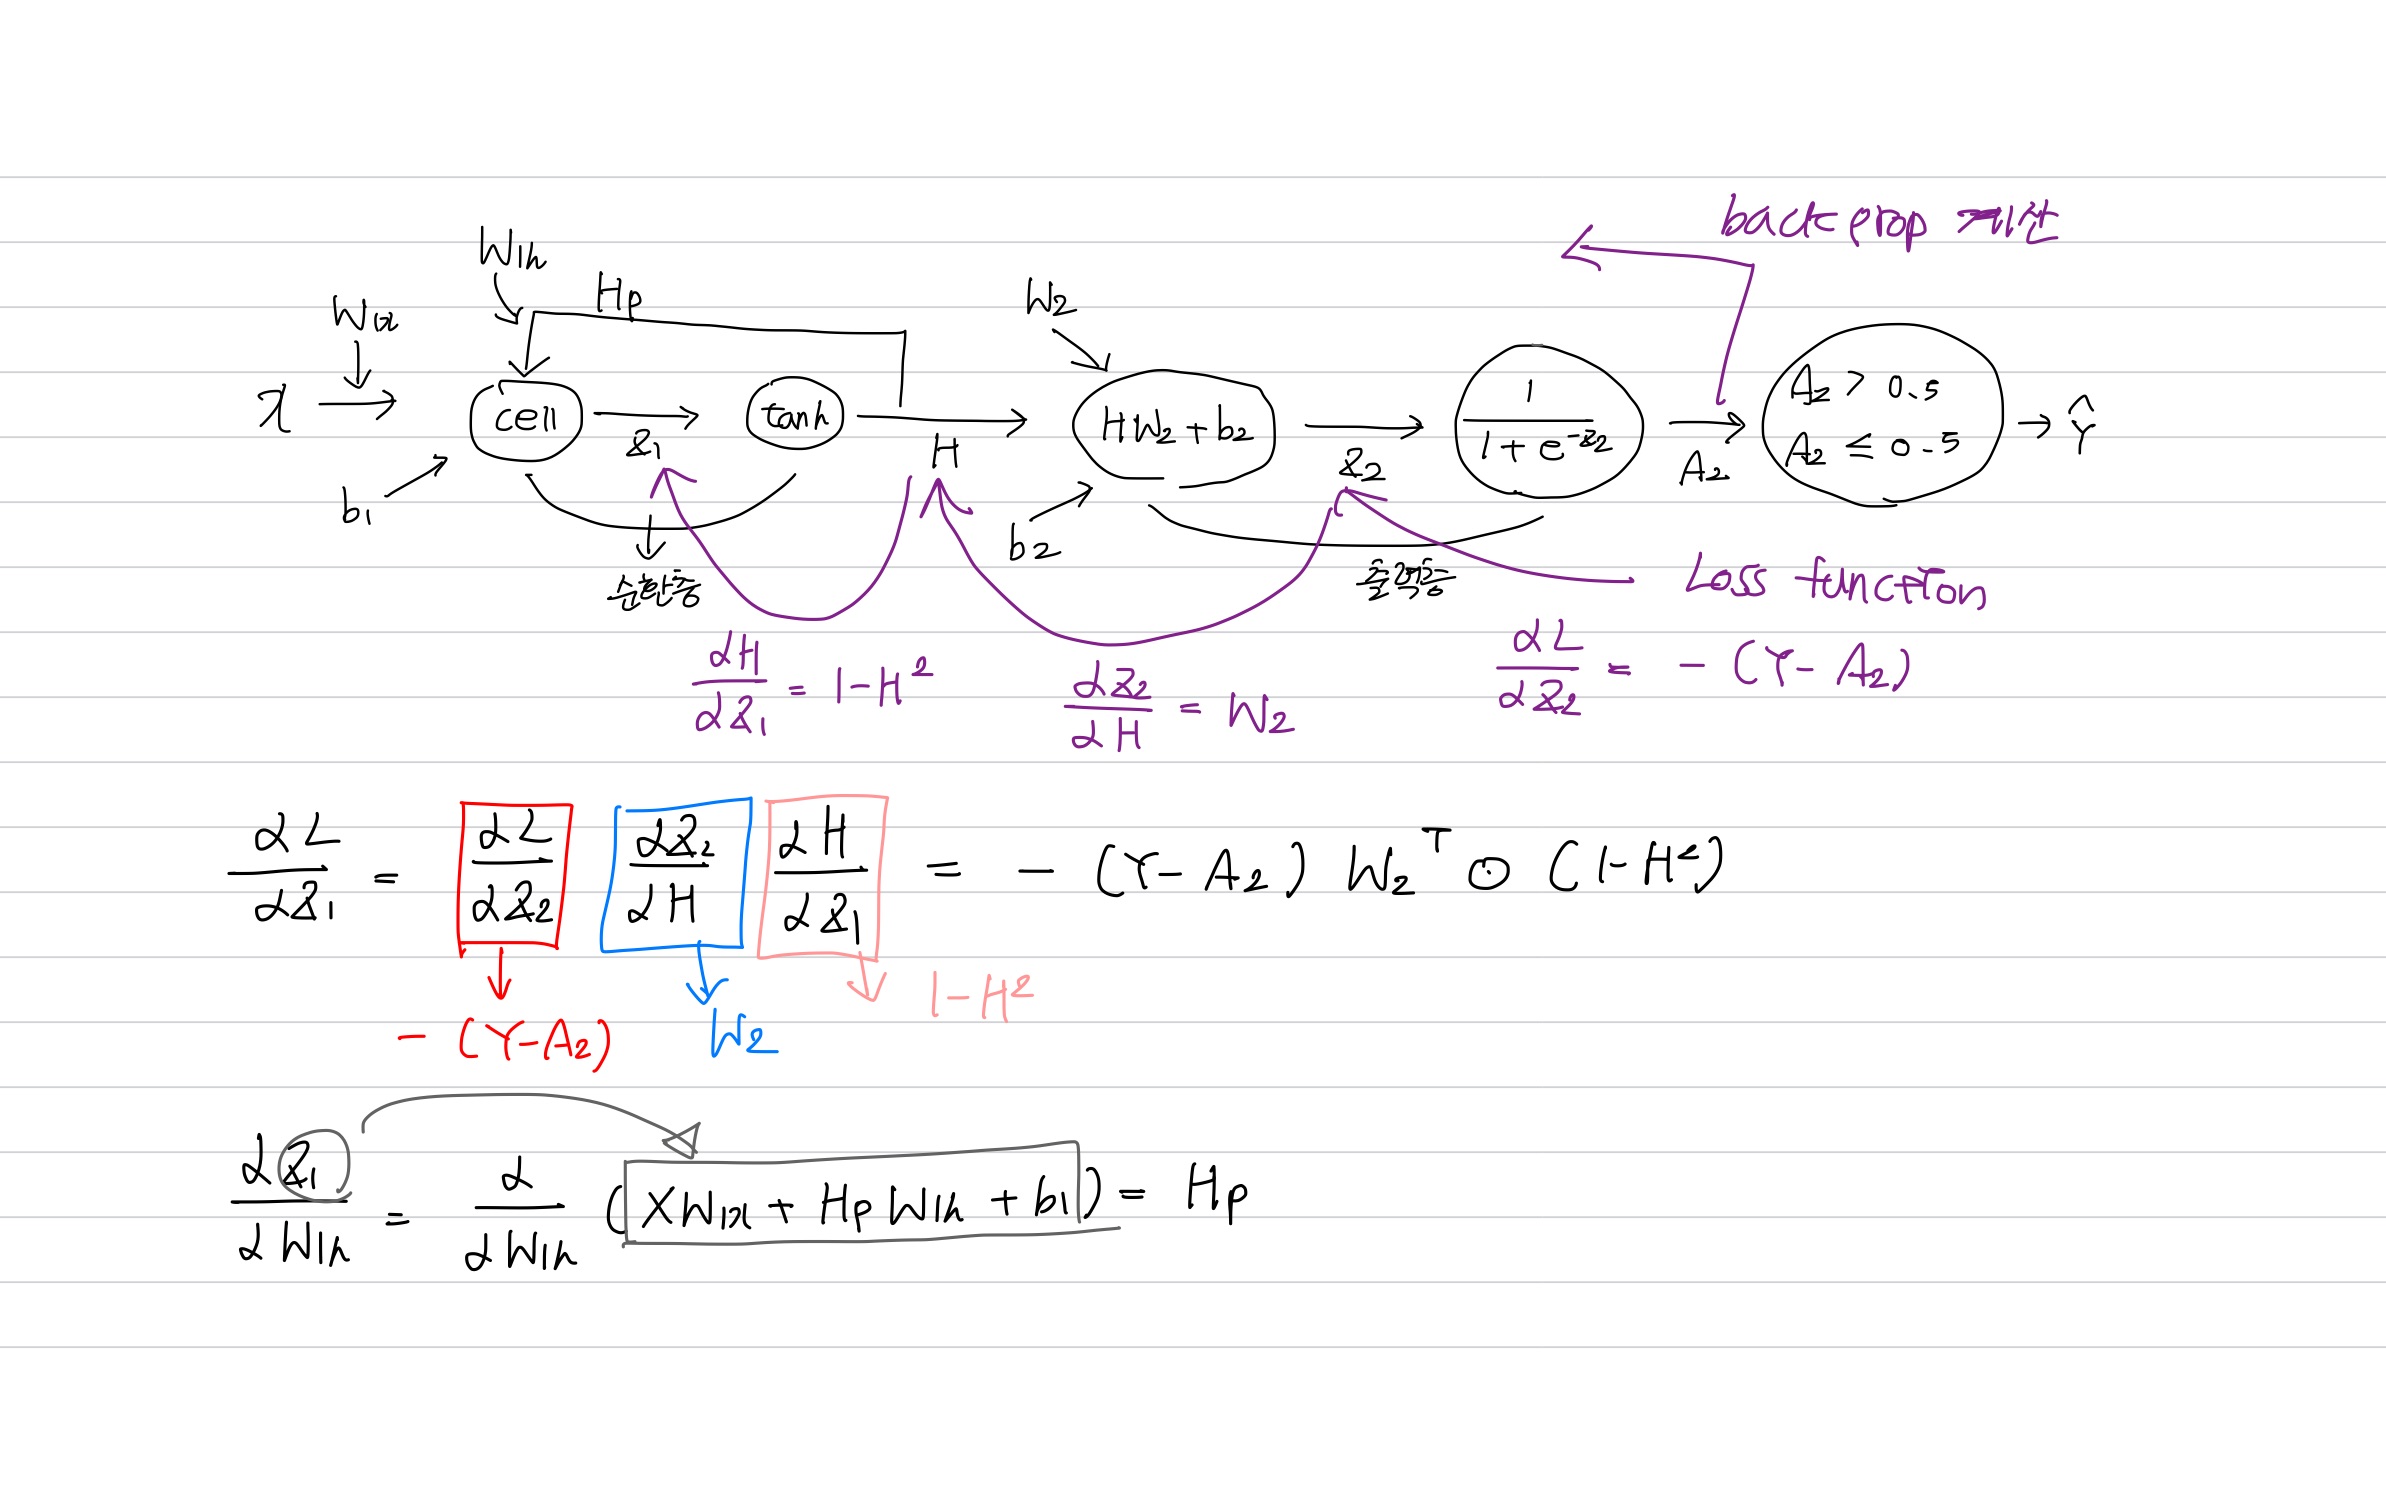 back prop 계산
W1h
Hp
W1x
W2
x
cell
Z1
tanh
H
HW2 + b2
Z2
1 / (1 + e^-Z2)
A2
A2 > 0.5
A2 ≤ 0.5
Ŷ
b1
b2
순환층
출력층
Loss function
∂H/∂Z1 = 1-H²
∂Z2/∂H = W2
∂L/∂Z2 = -(Y-A2)
∂L/∂Z1 = ∂L/∂Z2 ∂Z2/∂H ∂H/∂Z1 = -(Y-A2) W2^T ⊙ (1-H²)
-(Y-A2)
W2
1-H²
∂Z1/∂W1h = ∂/∂W1h (XW1x + HpW1h + b1) = Hp